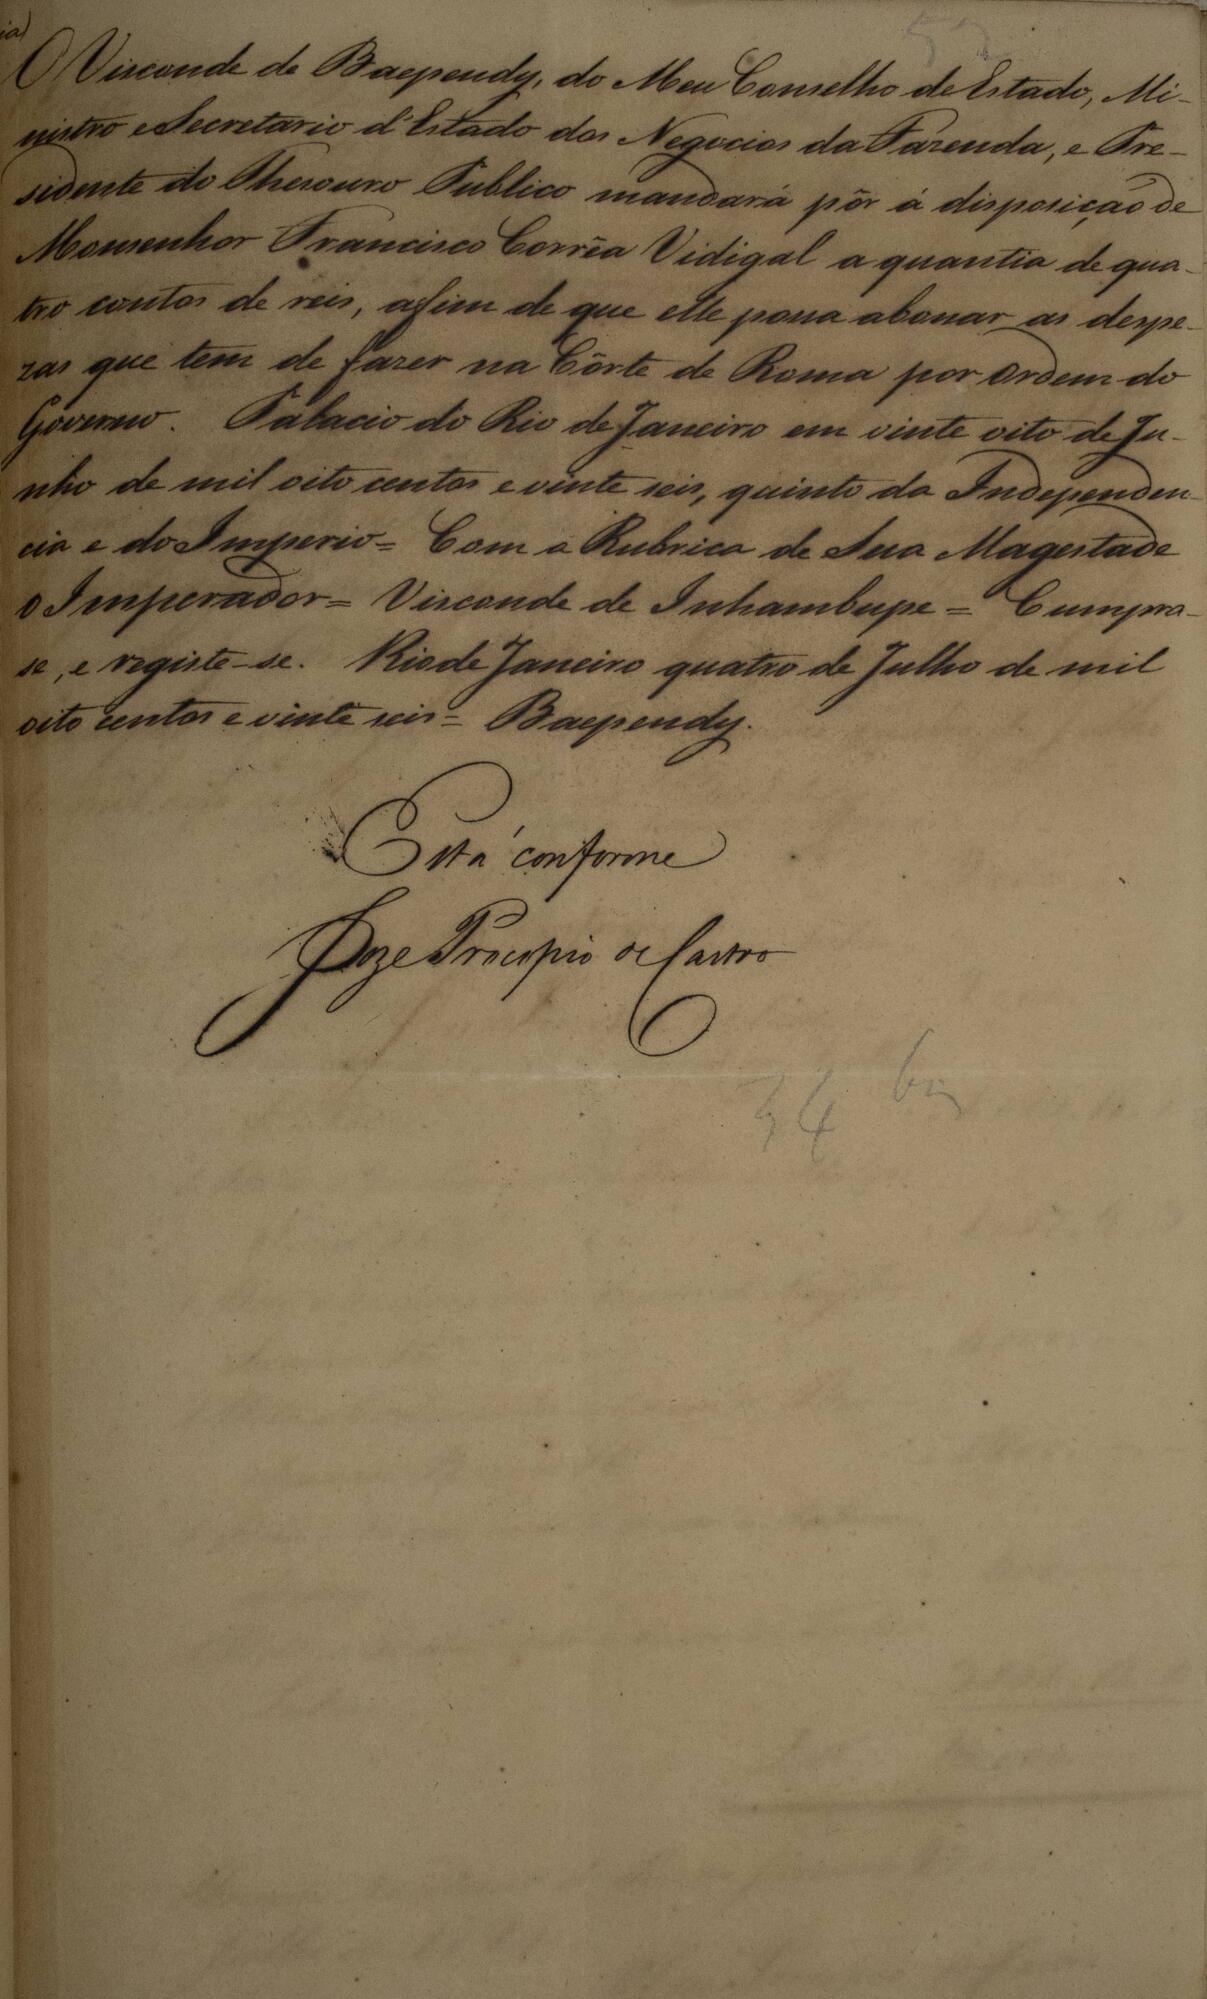 O Visconde de Baependy, do Meu Conselho de Estado, Mi-
nistro e Secretario d'Estado dos Negocios da Fazenda, e Pre-
sidente do Thesouro Publico mandará pôr á disposição de
Monsenhor Francisco Corrêa Vidigal a quantia de qua-
tro contos de reis, afim de que elle possa abonar as despe-
zas que tem de fazer na Côrte de Roma por ordem do
Governo. Palacio do Rio de Janeiro em vinte oito de Ju-
nho de mil oito centos e vinte seis, quinto da Independen-
cia e do Imperio = Com a Rubrica de Sua Magestade
o Imperador = Visconde de Inhambupe = Cumpra-
se, e registe-se. Rio de Janeiro quatro de Julho de mil
oito centos e vinte seis = Baependy.
Está conforme
Joze Procopio de Castro
34 bis